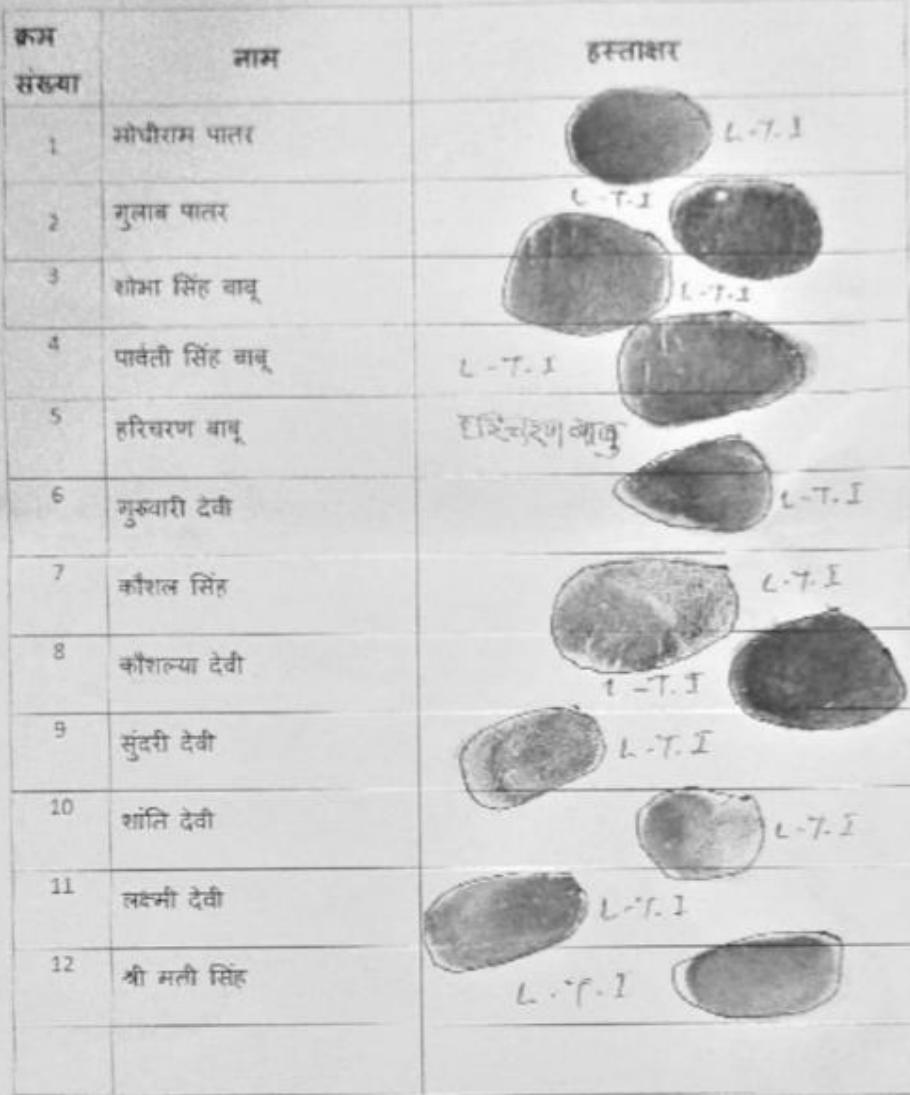 क्रम संख्या नाम हस्ताक्षर
1 मोचीराम पातर L-T-I
2 गुलाब पातर L-T-I
3 शोभा सिंह बाबू L-T-I
4 पार्वती सिंह बाबू L-T-I
5 हरिचरण बाबू हरिचरण बाबु
6 गुरुवारी देवी L-T-I
7 कौशल सिंह L-T-I
8 कौशल्या देवी L-T-I
9 सुंदरी देवी L-T-I
10 शांति देवी L-T-I
11 लक्ष्मी देवी L-T-I
12 श्री मती सिंह L-T-I